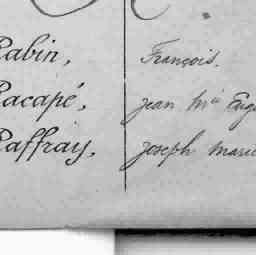 Rabin, François.
Racapé, Jean Mie Eug
Raffray, Joseph Marie